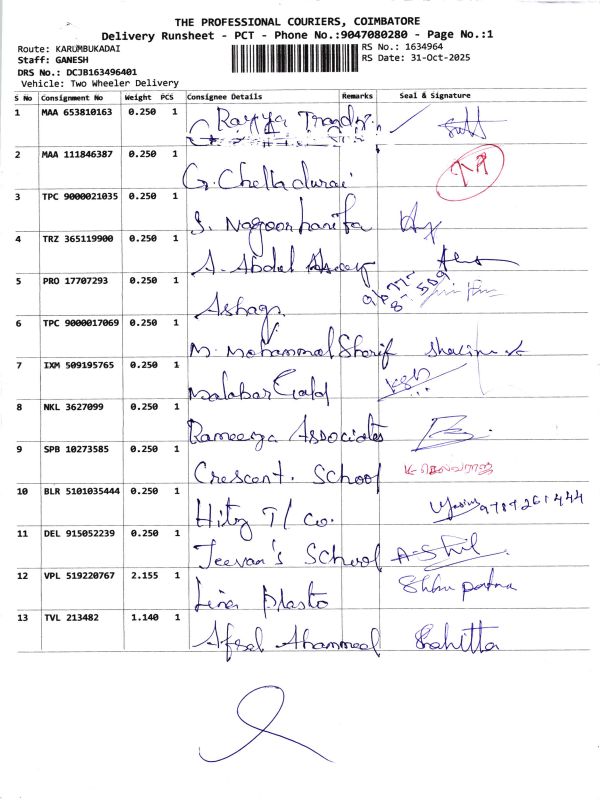 THE PROFESSIONAL COURIERS, COIMBATORE
Delivery Runsheet - PCT - Phone No.:9047080280 - Page No.:1
Route: KARUMBUKADAI
RS No.: 1634964
Staff: GANESH
RS Date: 31-Oct-2025
DRS No.: DCJB163496401
Vehicle: Two Wheeler Delivery
S No Consignment No Weight PCS Consignee Details Remarks Seal & Signature
1 MAA 653810163 0.250 1
2 MAA 111846387 0.250 1 G. Chelladurai
3 TPC 9000021035 0.250 1 S. Nagoorhanifa
4 TRZ 365119900 0.250 1 A. Abdul
5 PRO 17707293 0.250 1
6 TPC 9000017069 0.250 1 M. Mohammed Sherif
7 IXM 509195765 0.250 1 Malabar Gold
8 NKL 3627099 0.250 1 Rameeza Associates
9 SPB 10273585 0.250 1 Crescent. School
10 BLR 5101035444 0.250 1 Hitz T/ Co. 9787261444
11 DEL 915052239 0.250 1 Jeevan's School
12 VPL 519220767 2.155 1 Plasto
13 TVL 213482 1.140 1 Afsal Ahammed